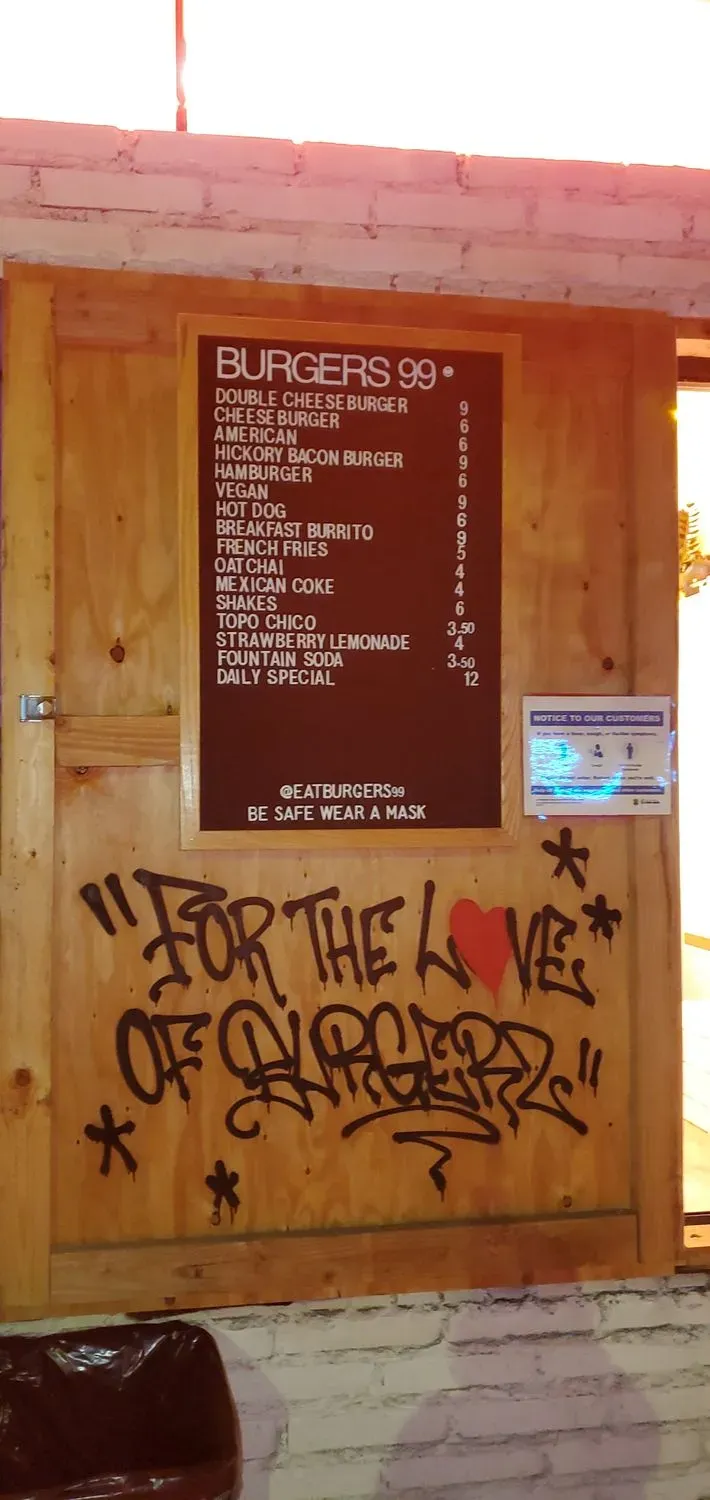 BURGERS 99
DOUBLE CHEESEBURGER 9
CHEESEBURGER 6
AMERICAN 6
HICKORY BACON BURGER 9
HAMBURGER 6
VEGAN 9
HOT DOG 6
BREAKFAST BURRITO 9
FRENCH FRIES 5
OAT CHAI 4
MEXICAN COKE 4
SHAKES 6
TOPO CHICO 3.50
STRAWBERRY LEMONADE 4
FOUNTAIN SODA 3-50
DAILY SPECIAL 12
@EATBURGERS99
BE SAFE WEAR A MASK
NOTICE TO OUR CUSTOMERS
If you have a fever, cough, or flu-like symptoms,
"FOR THE L♥VE
OF BURGERZ"